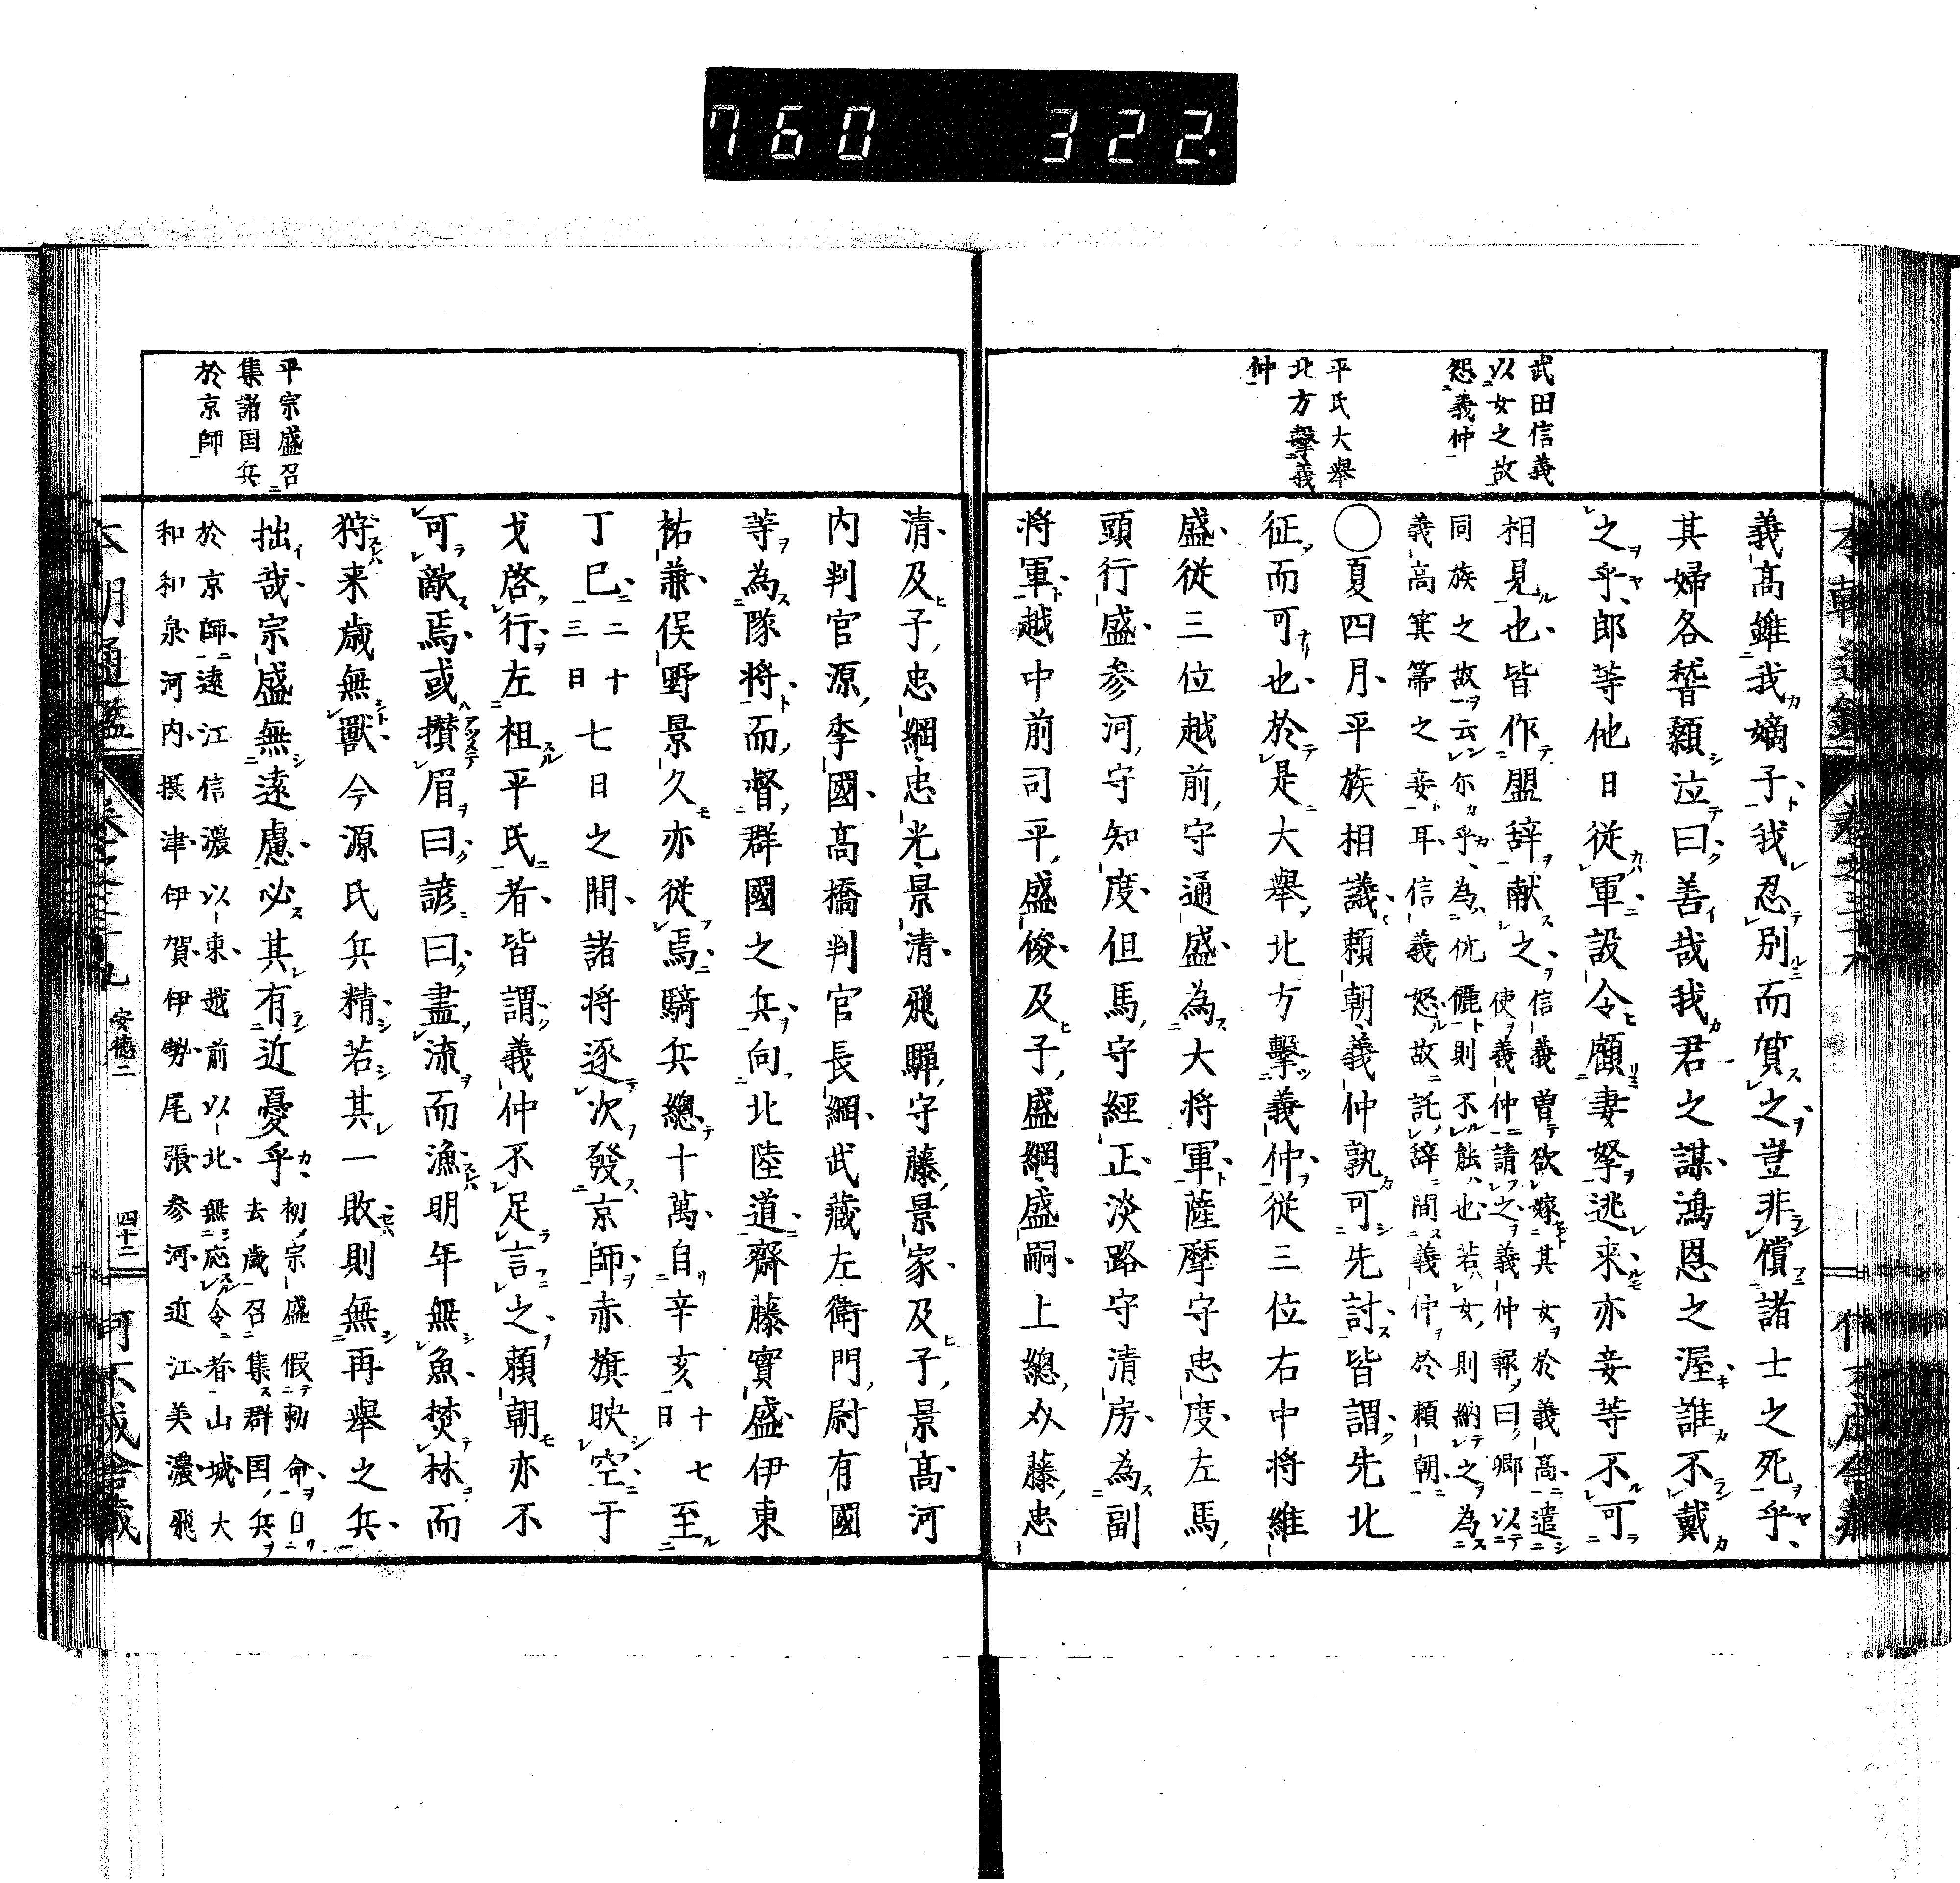 760 322.
武田信義
以女之故
怨義仲
平氏大舉
北方擊義
仲
義高雖我嫡子我忍別而質之豈非償諸士之死乎
其婦各稽顙泣曰善哉我君之謀鴻恩之渥誰不戴
之乎郎等他日從軍設令顧妻孥逃来亦妾等不可
相見也皆作盟辞献之
信義曽欲嫁其女於義高遣
使義仲請之義仲報曰卿以
同族之故云尓乎為伉儷則不能也若女則納之為
義高箕箒之妾耳信義怒故託辞間義仲於頼朝
◯夏四月平族相議頼朝義仲孰可先討皆謂先北
征而可也於是大舉北方擊義仲從三位右中将維
盛從三位越前守通盛為大将軍薩摩守忠度左馬
頭行盛参河守知度但馬守經正淡路守清房為副
将軍越中前司平盛俊及子盛綱盛嗣上總介藤忠
清及子忠綱忠光景清飛驒守藤景家及子景高河
内判官源季國高橋判官長綱武藏左衛門尉有國
等為隊将而督群國之兵向北陸道齋藤實盛伊東
祐兼俣野景久亦從焉騎兵總十萬自辛亥
十七
日
至
丁巳
二十
三日
七日之間諸将逐次發京師赤旗映空于
戈啓行左袒平氏者皆謂義仲不足言之頼朝亦不
可敵焉或攢眉曰諺曰盡流而漁明年無魚焚林而
狩来歳無獸今源氏兵精若其一敗則無再舉之兵
拙哉宗盛無遠慮必其有近憂乎
初宗盛假勅命自
去歳召集群国兵
於京師遠江信濃以東越前以北無応令者山城大
和和泉河内摂津伊賀伊勢尾張参河近江美濃飛
平宗盛召
集諸国兵
於京師
本朝通鑑
安德二
四十二